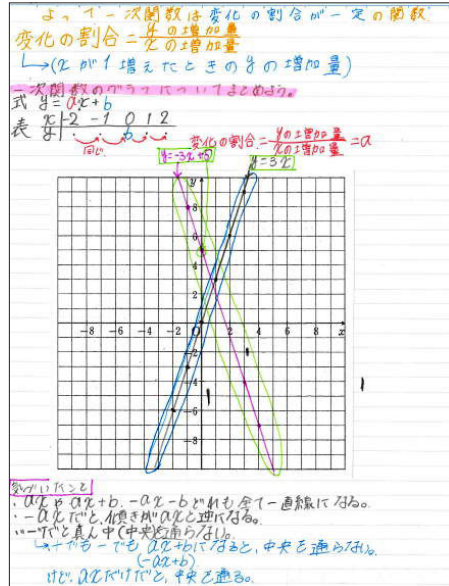 よって一次関数は変化の割合が一定の関数
変化の割合=yの増加量/xの増加量
→(xが1増えたときのyの増加量)
一次関数のグラフについてまとめよう。
式 y=ax+b
表 x -2 -1 0 1 2
y · · b · ·
同じ
変化の割合=yの増加量/xの増加量=a
y=-3x+5
y=3x
y
8
6
4
2
-8 -6 -4 -2 0 2 4 6 8 x
-2
-4
-6
-8
気づいたこと
・axやax+b、-ax-bどれも全て一直線になる。
・-axだと、傾きがaxと逆になる。
・-だと真ん中(中央)を通らない。
→+でも-でもax+bになると、中央を通らない。
(-ax+b)
けど、axだけだと、中央を通る。